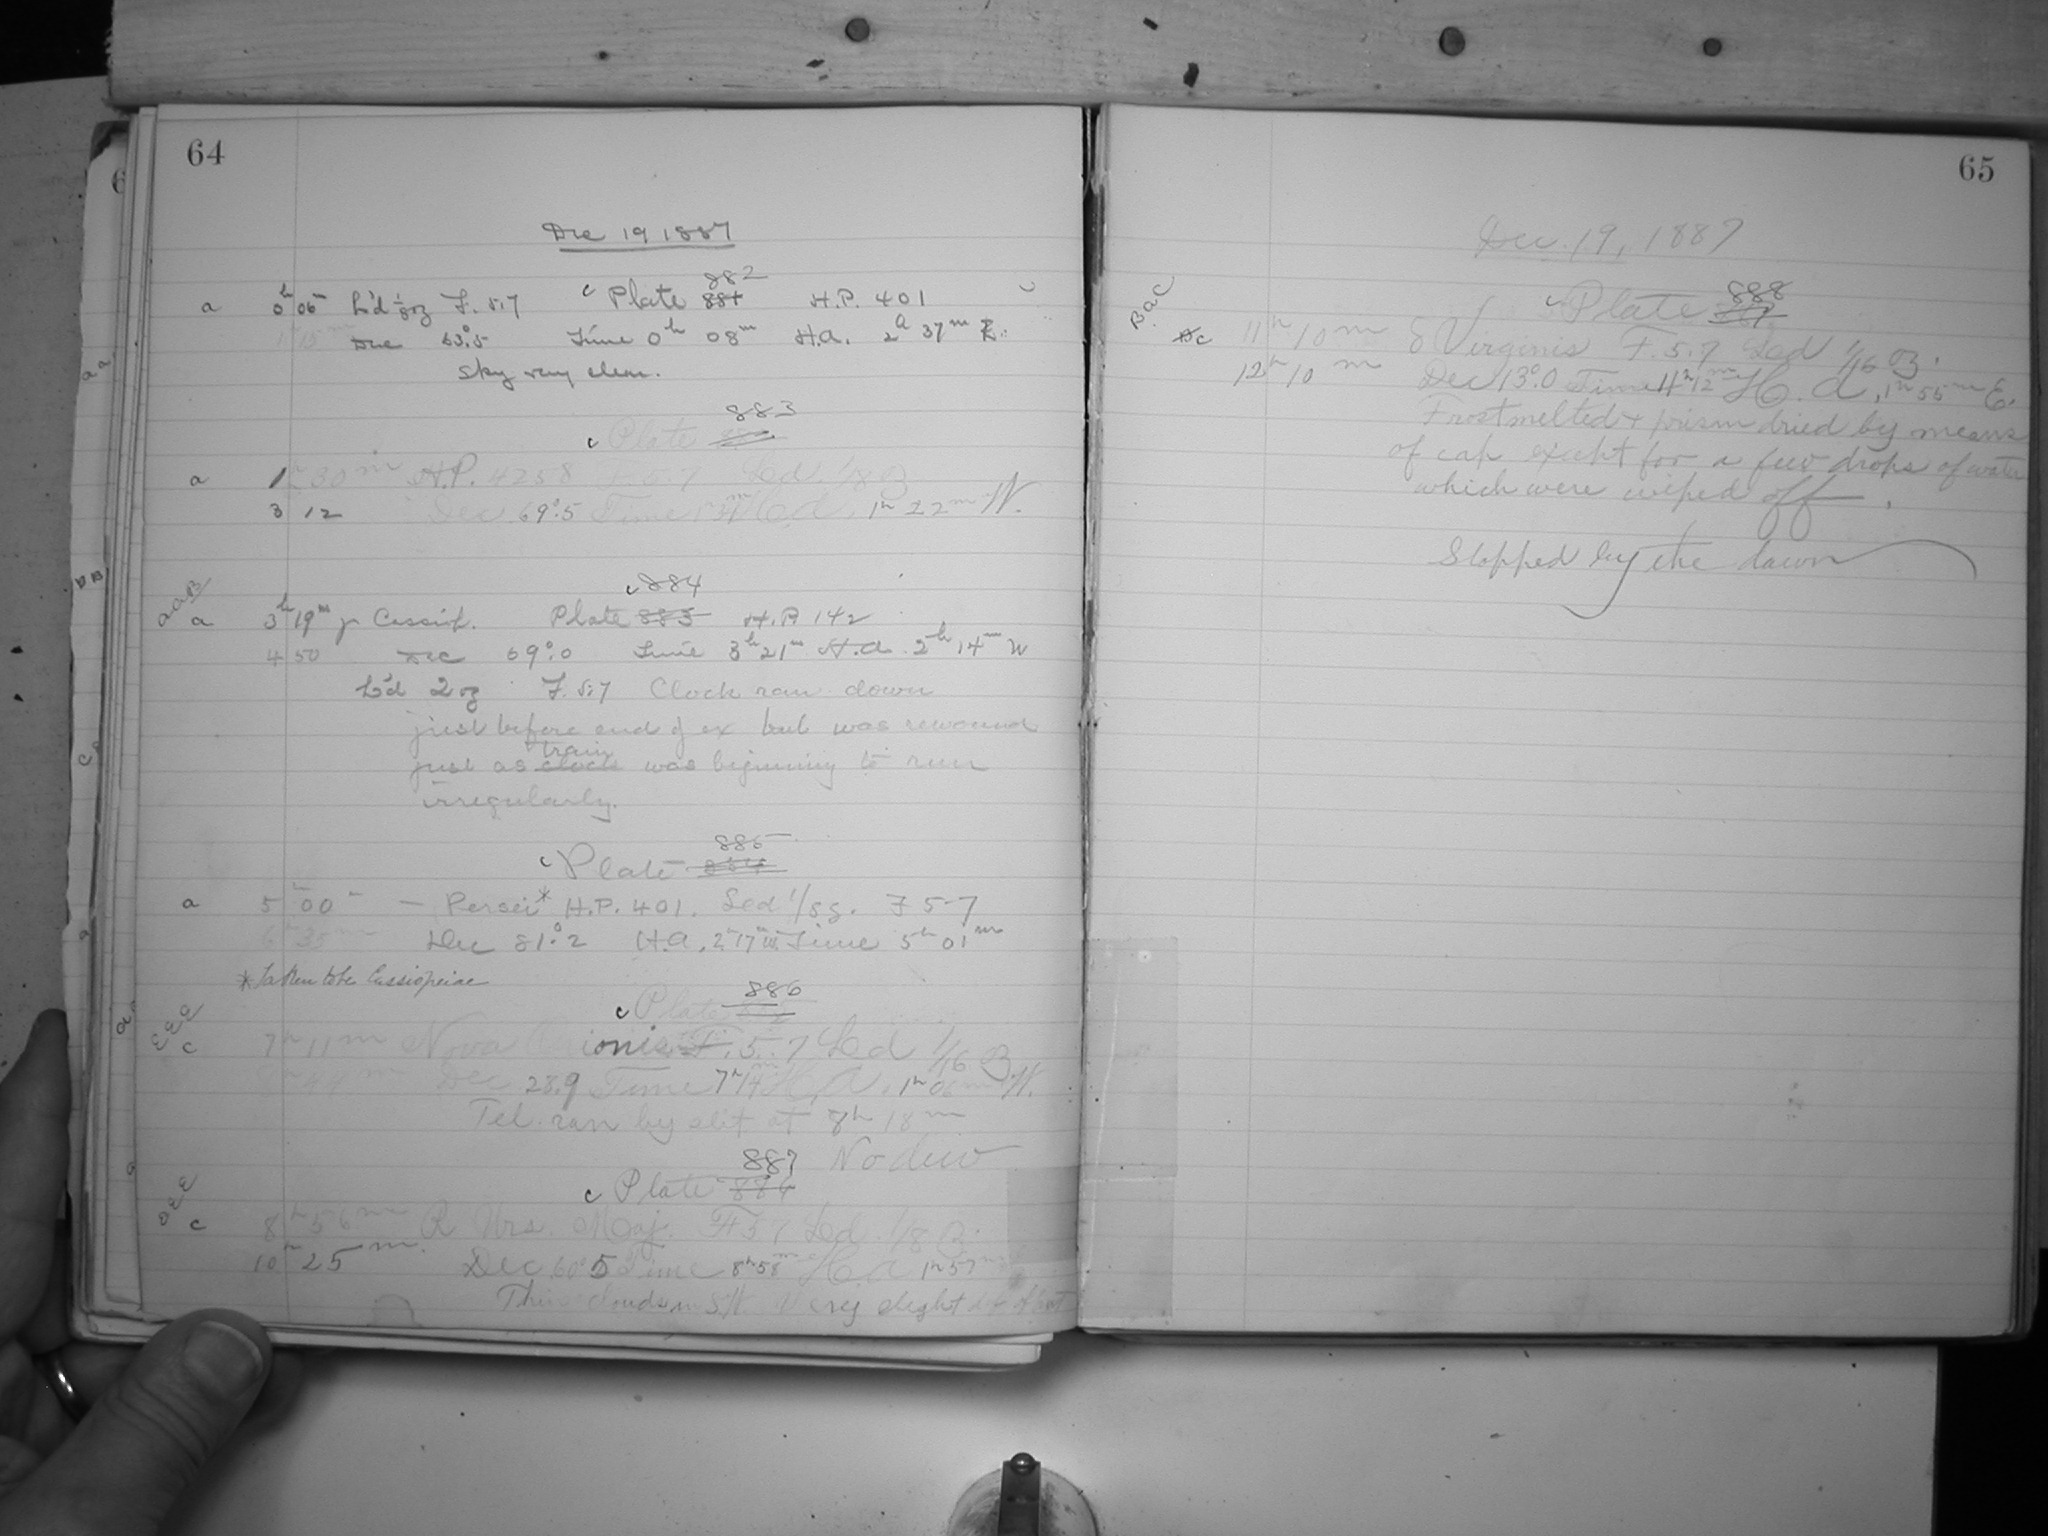 64
Dec 19 1887
882
a 0h 05 L'd 1/8 oz F. 5.7 c Plate 881 H.P. 401
1 15m Dec 63°.5 Time 0h 08m H.A. 2h 37m E.
Sky very clear.
883
c Plate
a 1h 30m H.P. 4258 F 5.7 Led. 1/8 oz
3 12 Dec 69°.5 Time H.A. 1h 22m W.
c 884
a a B a 3h 19m γ Cassiop. Plate 883 H.P. 142
4 50 Dec 69°.0 Time 3h 21m H.A. 2h 14m W
L'd 2 oz F. 5.7 Clock ran down
just before end of ex but was rewound
train
just as clock was beginning to run
irregularly.
885
c Plate 884
a 5 00 — Persei* H.P. 401. Led 1/8 F 5.7
6h 35m Dec 81°.2 H.A. 2h 17m Time 5h 01m
* Taken to be Cassiopeiae
886
c Plate
E E E c 7h 11m Nova Orionis F. 5.7 Led 1/16 oz
Dec 28.9 Time 7h 14m H.A. 1h 06m W.
Tel. ran by slit at 8h 18m
887 No dew
c Plate 886
c 8h 56m R Urs. Maj. F 5.7 Led. 1/8 oz
10h 25m Dec 60°.5 Time 8h 58m H.A. 1h 57m
Thin clouds in S.W. Very slight
65
Dec. 19, 1887
888
c Plate
B a C
c 11h 10m δ Virginis F. 5.7 Led 1/16 oz.
12h 10m Dec 13°.0 Time 11h 12m H.A. 1h 55m E.
Frost melted + prism dried by means
of cap except for a few drops of water
which were wiped off.
Stopped by the dawn